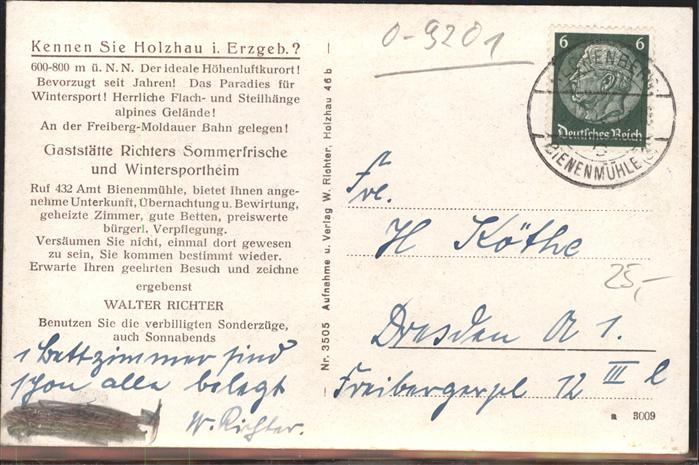 Kennen Sie Holzhau i. Erzgeb.?
600-800 m ü. N. N. Der ideale Höhenluftkurort!
Bevorzugt seit Jahren! Das Paradies für
Wintersport! Herrliche Flach- und Steilhänge
alpines Gelände!
An der Freiberg-Moldauer Bahn gelegen!
Gaststätte Richters Sommerfrische
und Wintersportheim
Ruf 432 Amt Bienenmühle, bietet Ihnen ange-
nehme Unterkunft, Übernachtung u. Bewirtung,
geheizte Zimmer, gute Betten, preiswerte
bürgerl. Verpflegung.
Versäumen Sie nicht, einmal dort gewesen
zu sein, Sie kommen bestimmt wieder.
Erwarte Ihren geehrten Besuch und zeichne
ergebenst
WALTER RICHTER
Benutzen Sie die verbilligten Sonderzüge,
auch Sonnabends
1 Bettzimmer sind
schon alle belegt
W. Richter.
Nr. 3505 Aufnahme u. Verlag W. Richter, Holzhau 46 b
0-9201
6 6
Deutsches Reich
BIENENMÜHLE
Frl.
H Köthe
25,-
Dresden A 1.
Freibergerpl 12 III l
a 3009